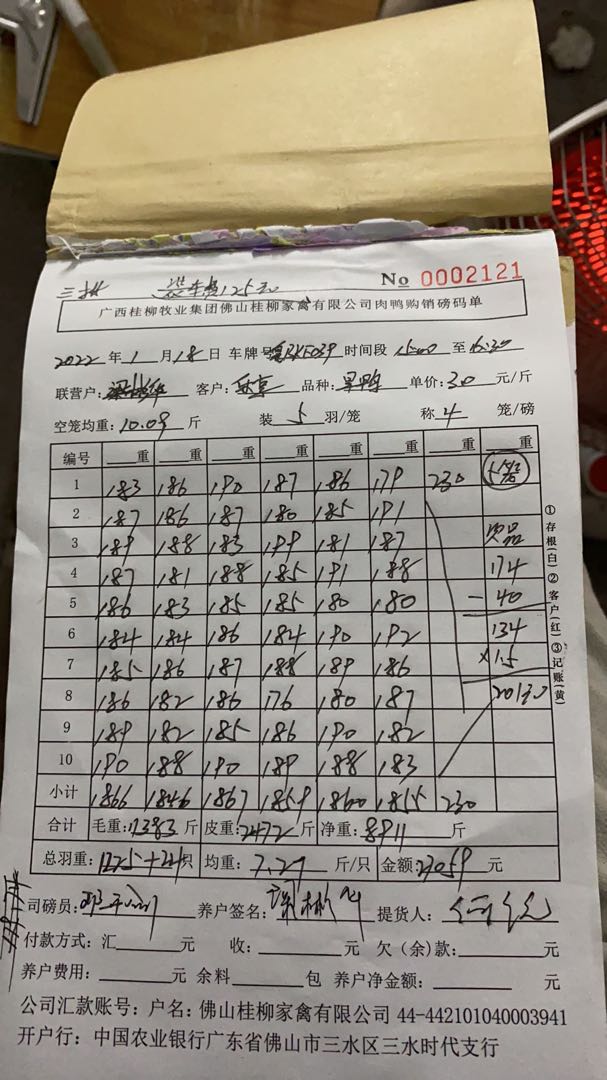 装车费125元 No 0002121
广西桂柳牧业集团佛山桂柳家禽有限公司肉鸭购销磅码单
2022年1月18日 车牌号 时间段15:00至15:30
联营户: 客户: 品种: 单价:3.0元/斤
空笼均重:10.09斤 装5羽/笼 称4笼/磅
编号 重 重 重 重 重 重 重 重
1 183 186 190 187 186 179 230
2 187 186 187 180 185 191
3 189 188 183 199 181 187 次品
4 187 181 188 185 191 188 174
5 186 183 185 185 180 180 -40
6 184 184 186 184 190 192 134
7 185 186 187 188 189 186 ×1.5
8 186 182 186 176 180 187 201元
9 189 182 185 186 190 182
10 190 188 190 189 188 183
小计 1866 1846 1867 1859 1860 1855 230
合计 毛重:11383斤 皮重:2472斤 净重:8911斤
总羽重:1225+ 只 均重:7.27斤/只 金额:23059元
司磅员: 养户签名: 提货人:
付款方式:汇 元 收: 元 欠(余)款: 元
养户费用: 元 余料 包 养户净金额: 元
公司汇款账号:户名:佛山桂柳家禽有限公司 44-442101040003941
开户行:中国农业银行广东省佛山市三水区三水时代支行
①存根(白)②客户(红)③记账(黄)